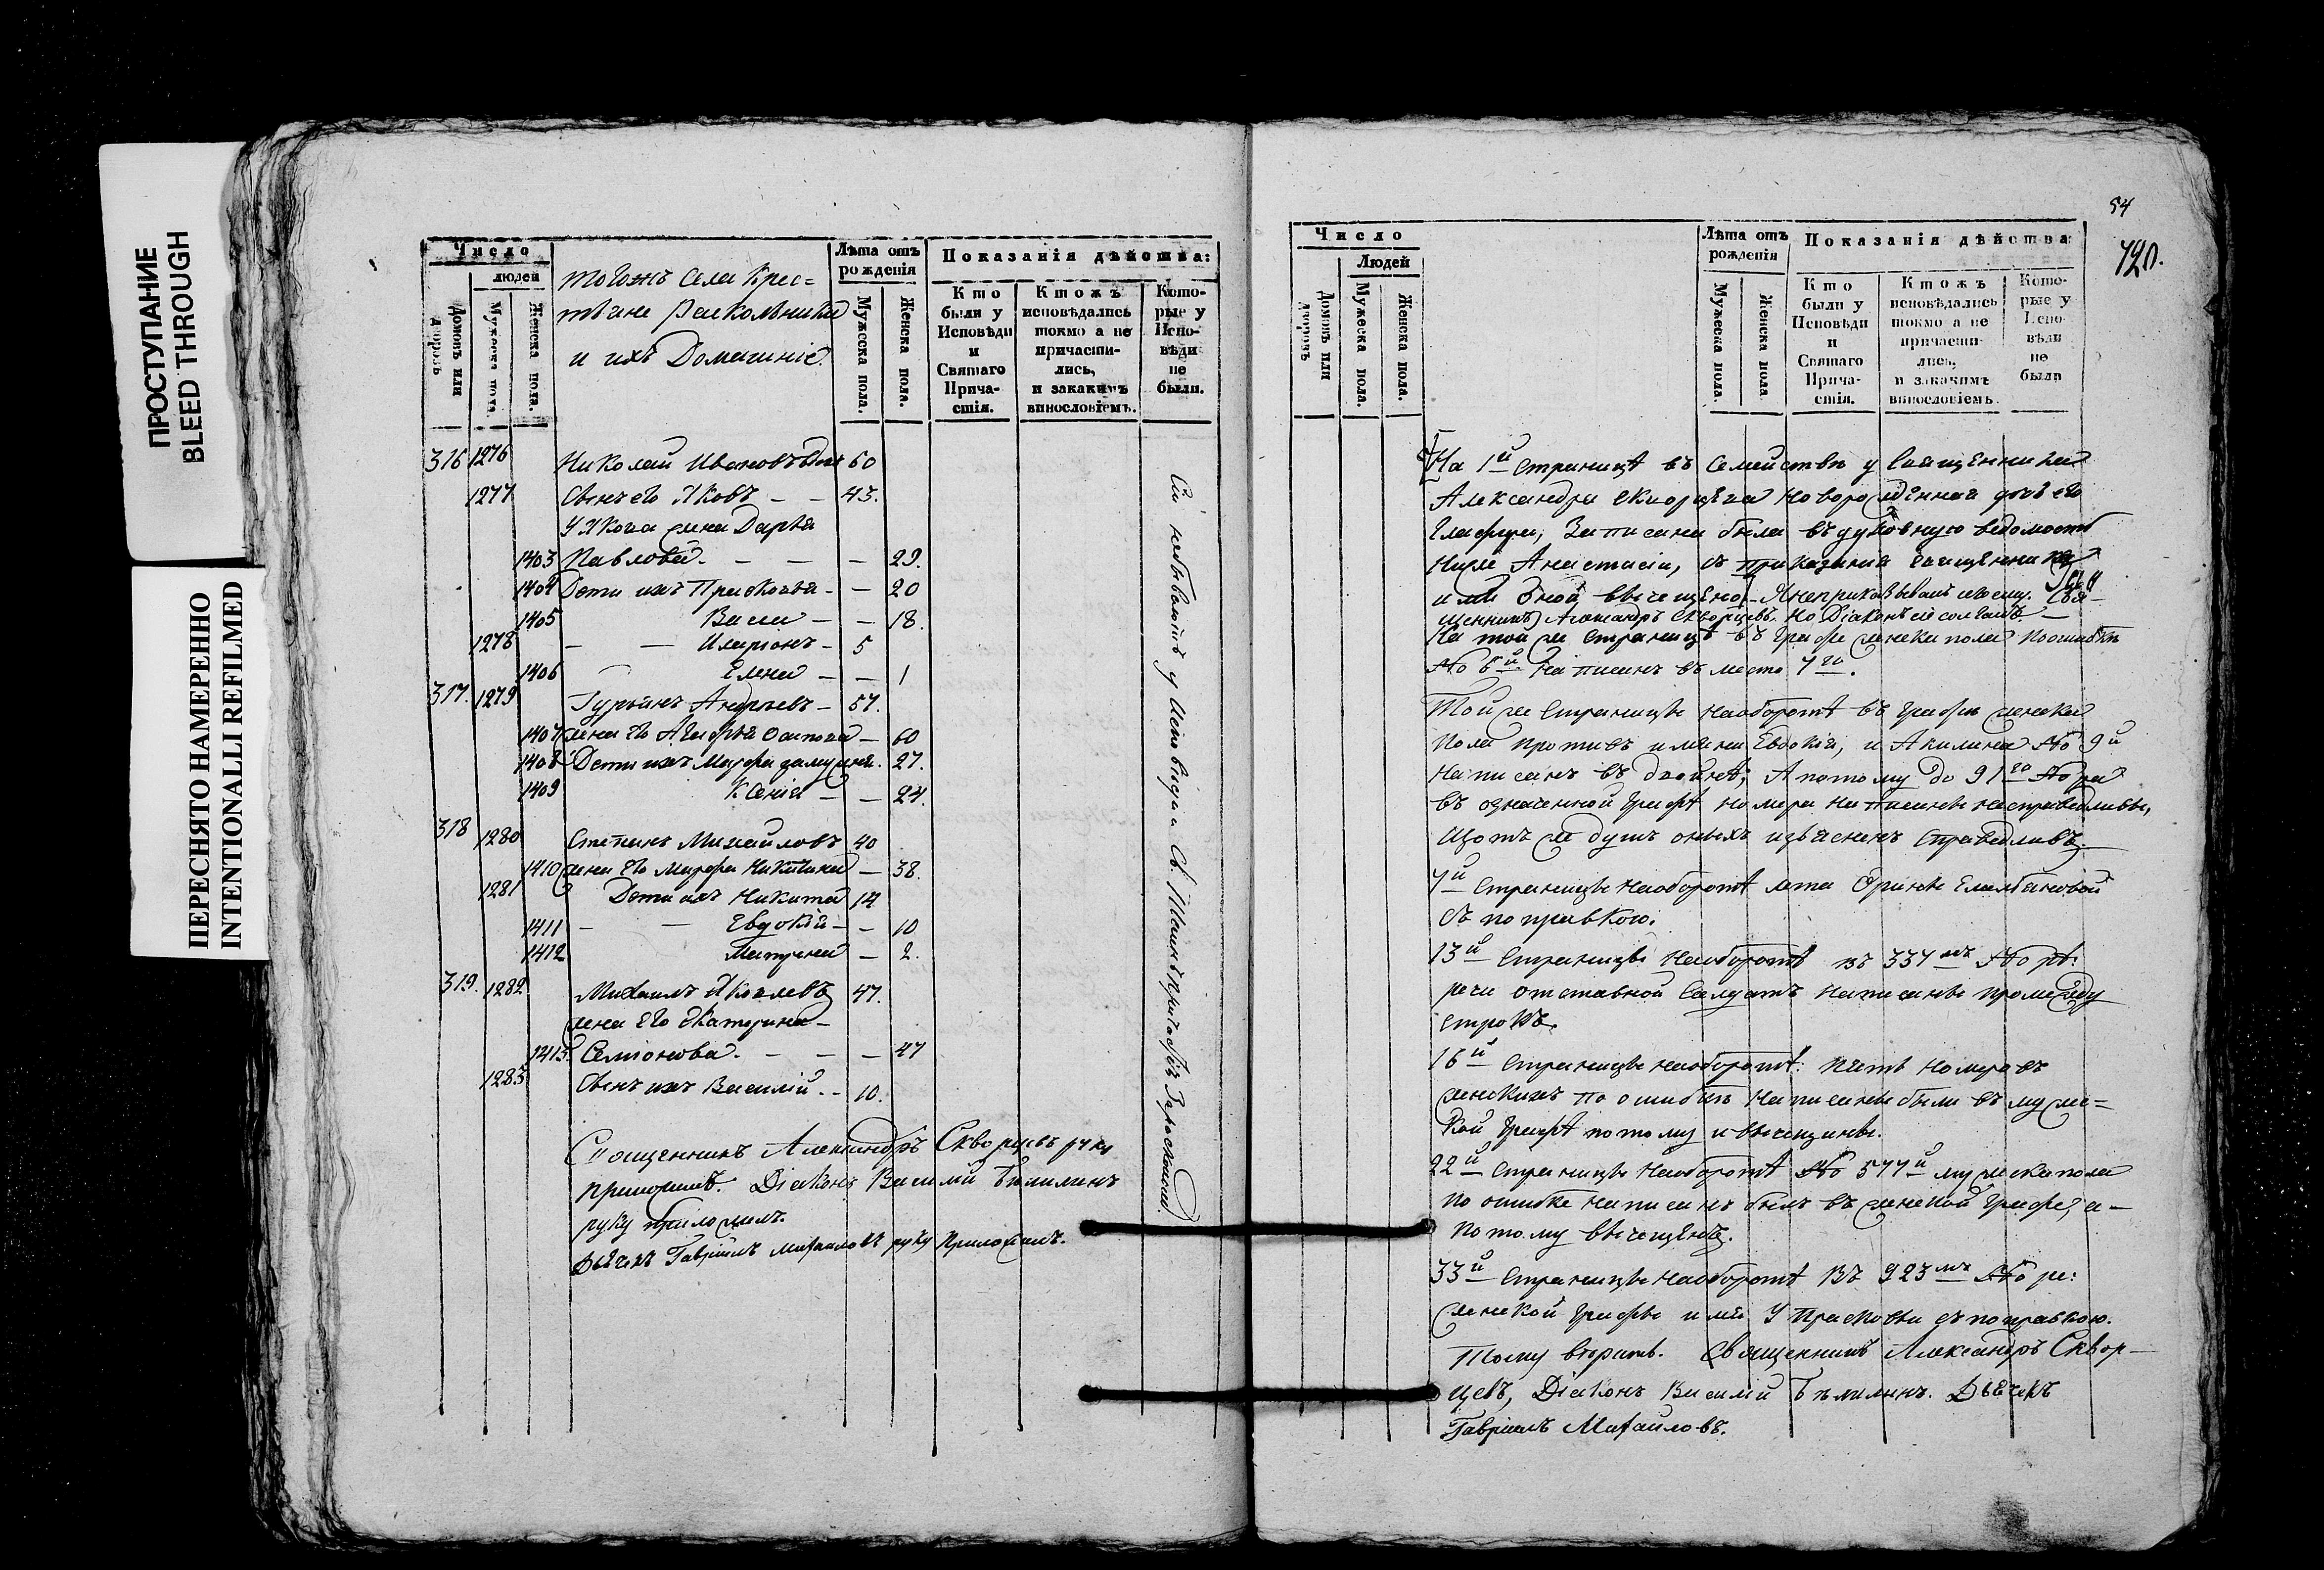 ПРОСТУПАНИЕ
BLEED THROUGH
ПЕРЕСНЯТО НАМЕРЕННО
INTENTIONALLI REFILMED
Число
людей
Домовъ или дворовъ
Мужеска пола.
Женска пола.
Тогожъ села Крес=
тьяне Раскольники
и ихъ Домашніе.
Лѣта отъ рожденія
Мужеска пола.
Женска пола.
Показанія дѣйства:
Кто были у Исповѣди и Святаго Прича-стія.
Ктожъ исповѣдались токмо а не причасти-лись, и закакимъ винословіемъ.
Кото-рые у Испо-вѣди не были.
316 1276 Николай Ивановъ 60
1277 Сынъ его Яковъ - - 43.
У Якова жена Дарья
1403 Павлова. - - - 29.
1404 Дети ихъ Прасковья - - 20
1405 Васса - - 18.
1278 - - Иларіонъ - 5
1406 - Елена - - 1
317. 1279 Гурьянъ Андреевъ - 57.
1407 жена его Агафья Осипова - 60
1408 Дети ихъ Марфа 27.
1409 Ксенія - - 24.
318 1280 Степанъ Михайловъ 40
1410 жена его Марфа Никитина - 38.
1281 Дети ихъ Никита 14
1411 - - Евдокія - - 10
1412 Матрена - 2.
319. 1282 Михаилъ Яковлевъ 47.
жена его Екатерина -
1413. Семіонова. - - - 47
1283 Сынъ ихъ Василій. - - 10.
Священникъ Александръ Скворцевъ руку
приложилъ. Діаконъ Василій
руку приложилъ.
Дьячекъ Гавріилъ Михайловъ руку приложилъ.
54
720.
Число
Людей
Домовъ или дворовъ
Мужеска пола.
Женска пола.
Лѣта отъ рожденія
Мужеска пола.
Женска пола.
Показанія дѣйства
Кто были у Исповѣди и Святаго Прича-стія.
Ктожъ исповѣдались токмо а не причасти-лись, и закакимъ винословіемъ.
Кото-рые у Испо-вѣди не были
На 1й страницѣ въ семействѣ у Священника
Александра Скворцева новорожденная дочь его
Глафира, Записана была въ духовную ведомость
Анастасіи, съ приказанія священника
щенникъ Александръ Скворцевъ. Но Діаконъ
На той же страницѣ въ графе женска пола по ошибкѣ
№ 6й написанъ въ место 7го.
Той же страницы на оборотѣ въ графе женска
пола противъ имяни Евдокія, и Акилина № 9й
написанъ въ двойнѣ; А потому до 91го №ра
въ означенной графѣ номера написаны несправедливы,
Щотъ же душъ оныхъ изъясненъ справедливъ.
7й страницы на оборотѣ лета Орины
съ поправкою.
13й страницы на оборотѣ въ 337мъ №рѣ:
речи отставной Салдатъ написаны промежду
строкъ.
16й страницы на оборотѣ: пять номеровъ
женскихъ по ошибкѣ написаны были въ мужес=
кой графѣ потому и вычищены.
22й страницы на оборотѣ № 577й мужеска пола
по ошибке написанъ былъ въ женской графе, а -
потому вычещенъ.
33й страницы на оборотѣ въ 923мъ №ре:
женской графы имя У Прасковьи съ поправкою.
Священникъ Александръ Сквор-
цевъ, Діаконъ Василій Дьячекъ
Гавріилъ Михайловъ.